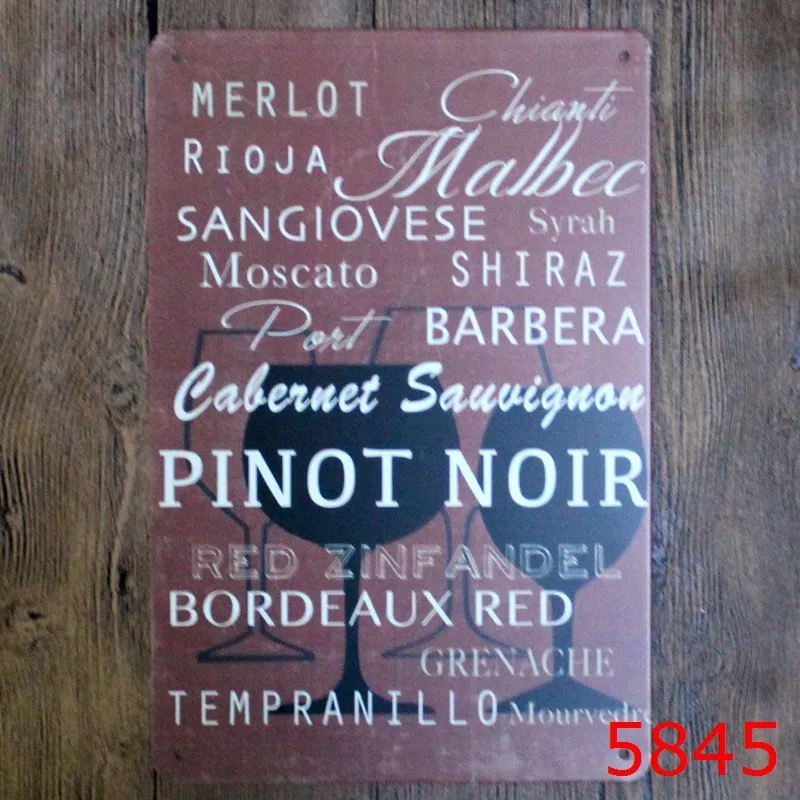 MERLOT Chianti
RIOJA Malbec
SANGIOVESE Syrah
Moscato SHIRAZ
Port BARBERA
Cabernet Sauvignon
PINOT NOIR
RED ZINFANDEL
BORDEAUX RED
GRENACHE
TEMPRANILLO Mourvedre
5845